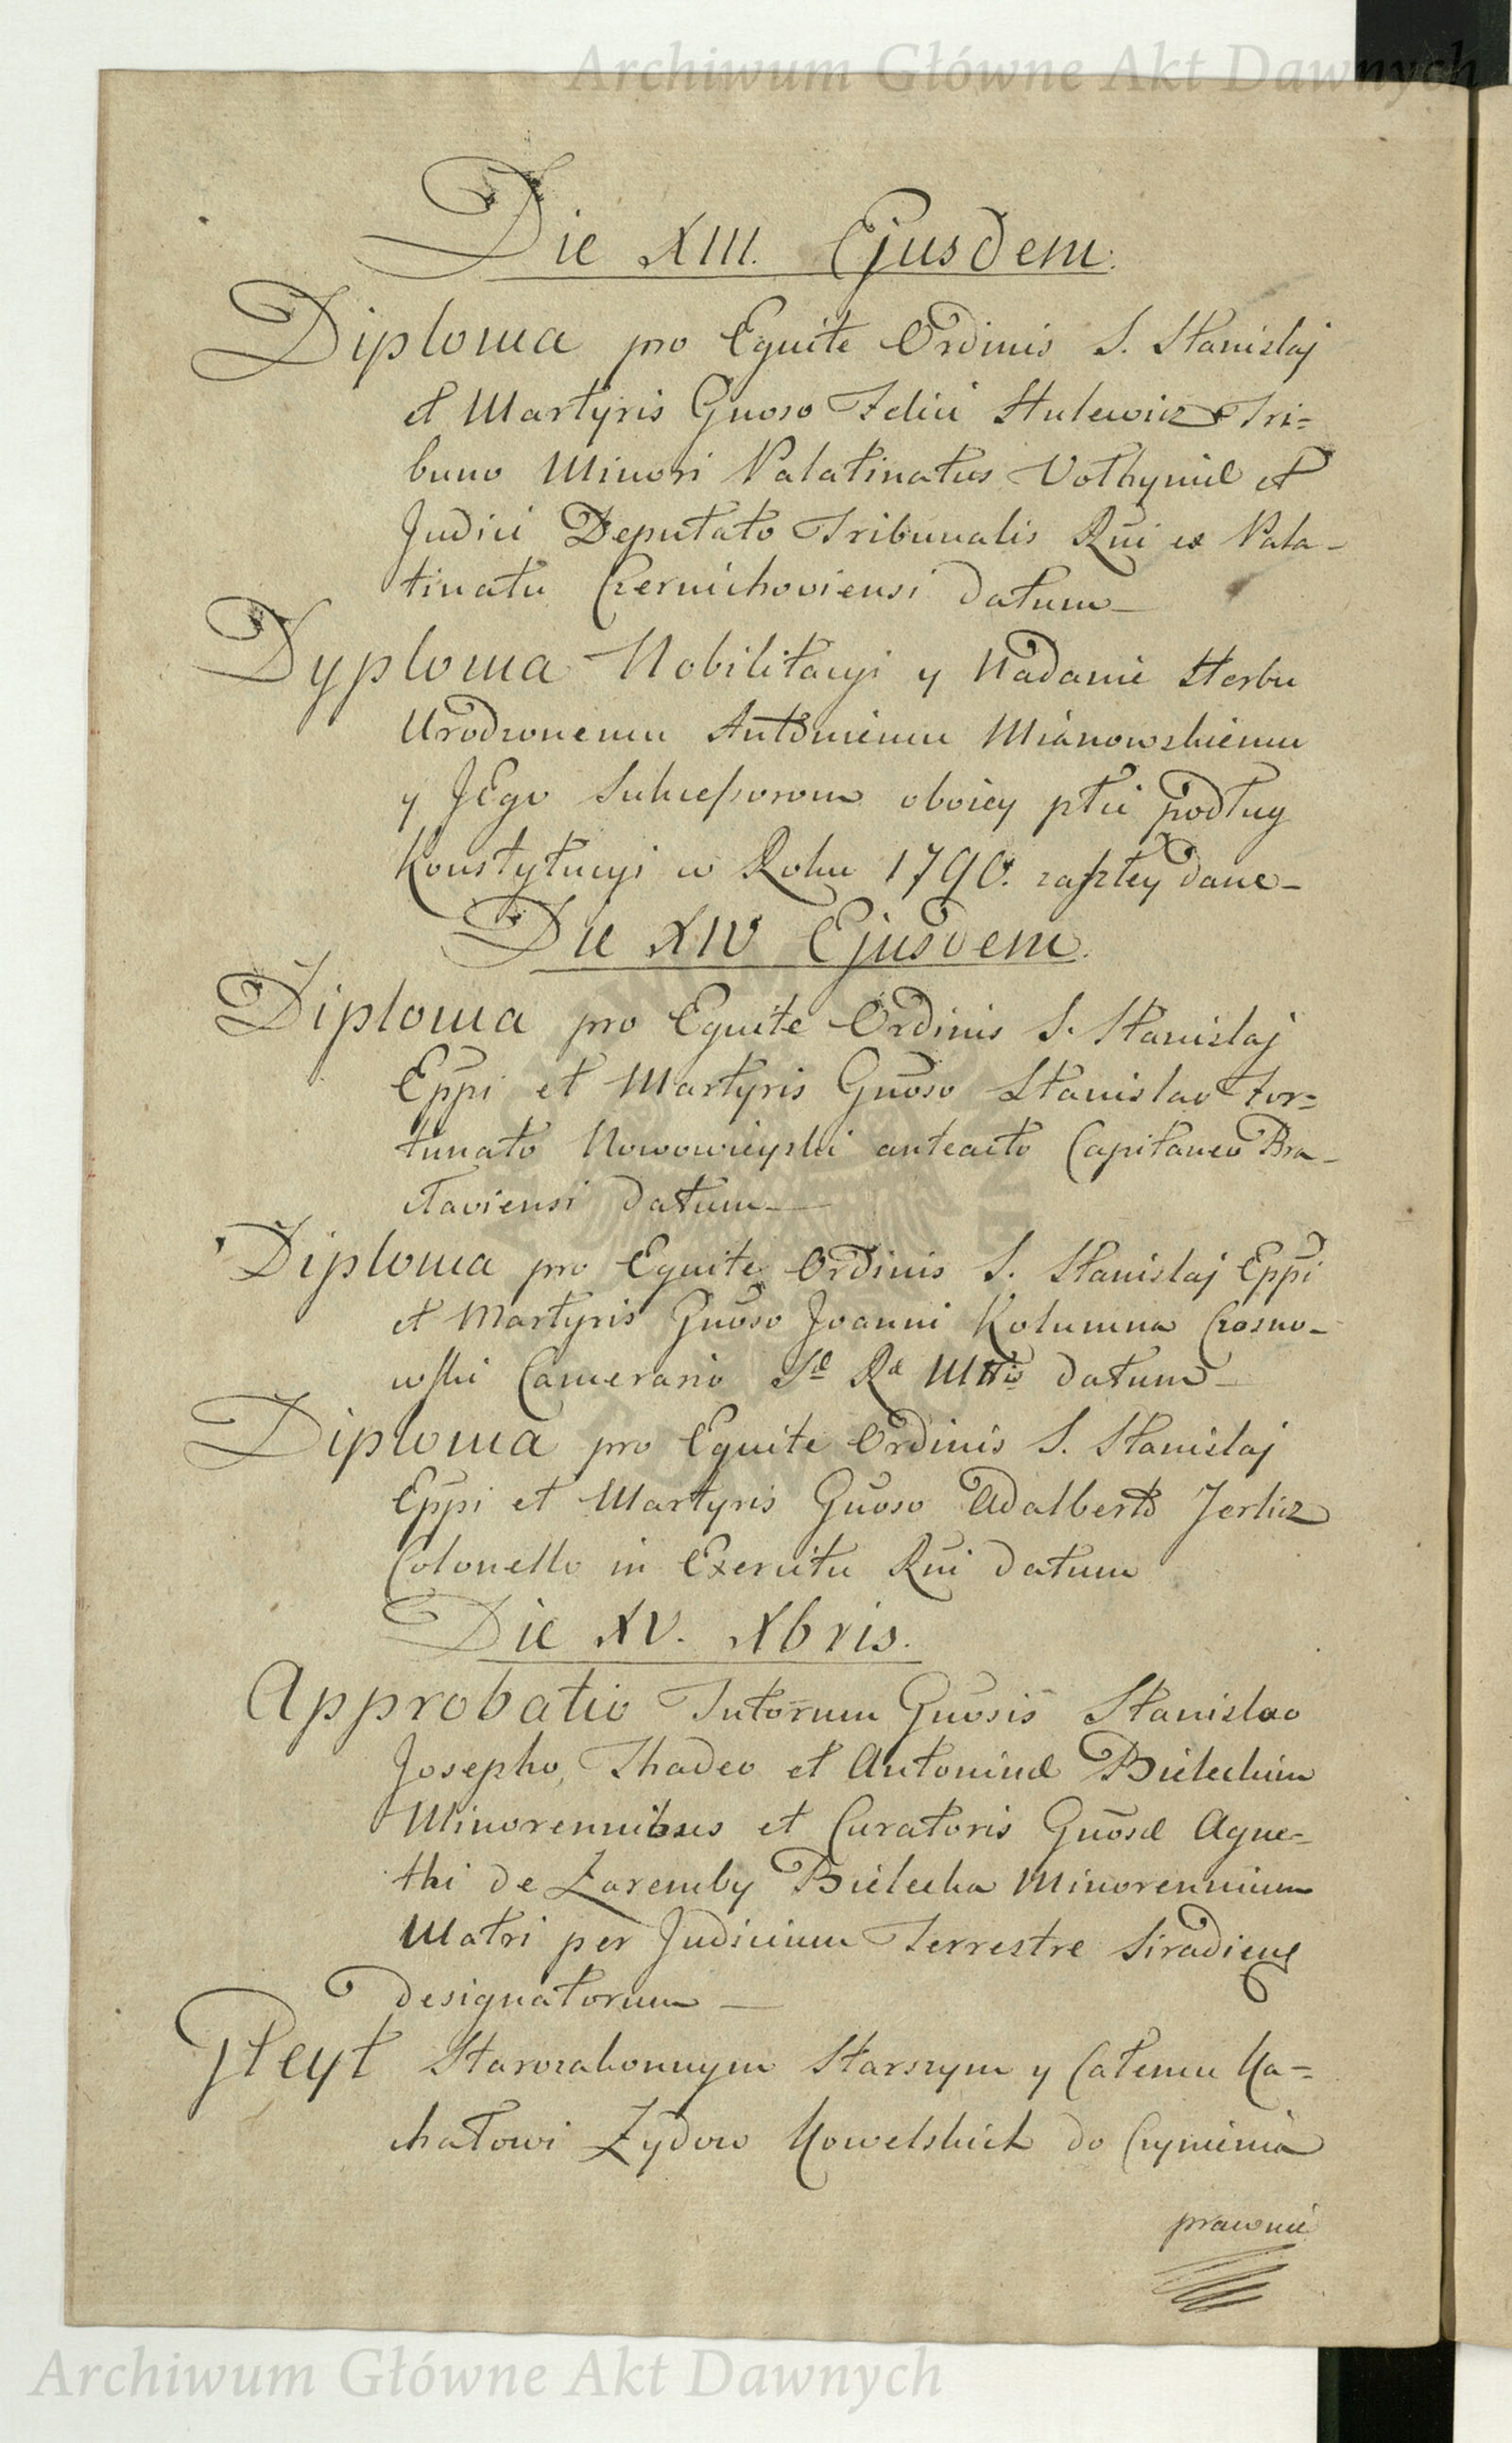 Archiwum Główne Akt Dawnych
Die XIII. Ejusdem.
Diploma pro Equite Ordinis S. Stanislaj
et Martyris Gnoso Felici Hulewicz Tri=
buno Minori Palatinatus Volhyniæ et
Judici Deputato Tribunalis Rni ex Pala-
tinatu Czernichoviensi datum—
Dyploma Nobilitacyi y Nadanie Herbu
Urodzonemu Antoniemu Mianowskiemu
y JEgo Sukcessorom oboiey płci podług
Konstytucyi w Roku 1790. zaszłey dane—
Die XIV Ejusdem.
Diploma pro Equite Ordinis S. Stanislaj
Eppi et Martyris Gnoso Stanislao For=
tunato Nowowieyski anteacto Capitaneo Bra-
claviensi datum—
Diploma pro Equite Ordinis S. Stanislaj Eppi
et Martyris Gnoso Joanni Kolumna Czosno-
wski Camerario Sæ Ræ Mttis datum—
Diploma pro Equite Ordinis S. Stanislaj
Eppi et Martyris Gnoso Adalberto Jerlicz
Colonello in Exercitu Rni datum
Die XV. Xbris.
Approbatio Tutorum Gnosis Stanislao
Josepho, Thadeo et Antoninæ Bieleckim
Minorennibus et Curatoris Gnosæ Agne=
thi de Zaremby Bielecka Minorennium
Matri per Judicium Terrestre Siradiens
designatorum —
Gleyt Starozakonnym Starszym y Całemu Ka=
hałowi Zydow Kowelskich do Czynienia
prawnie
Archiwum Główne Akt Dawnych